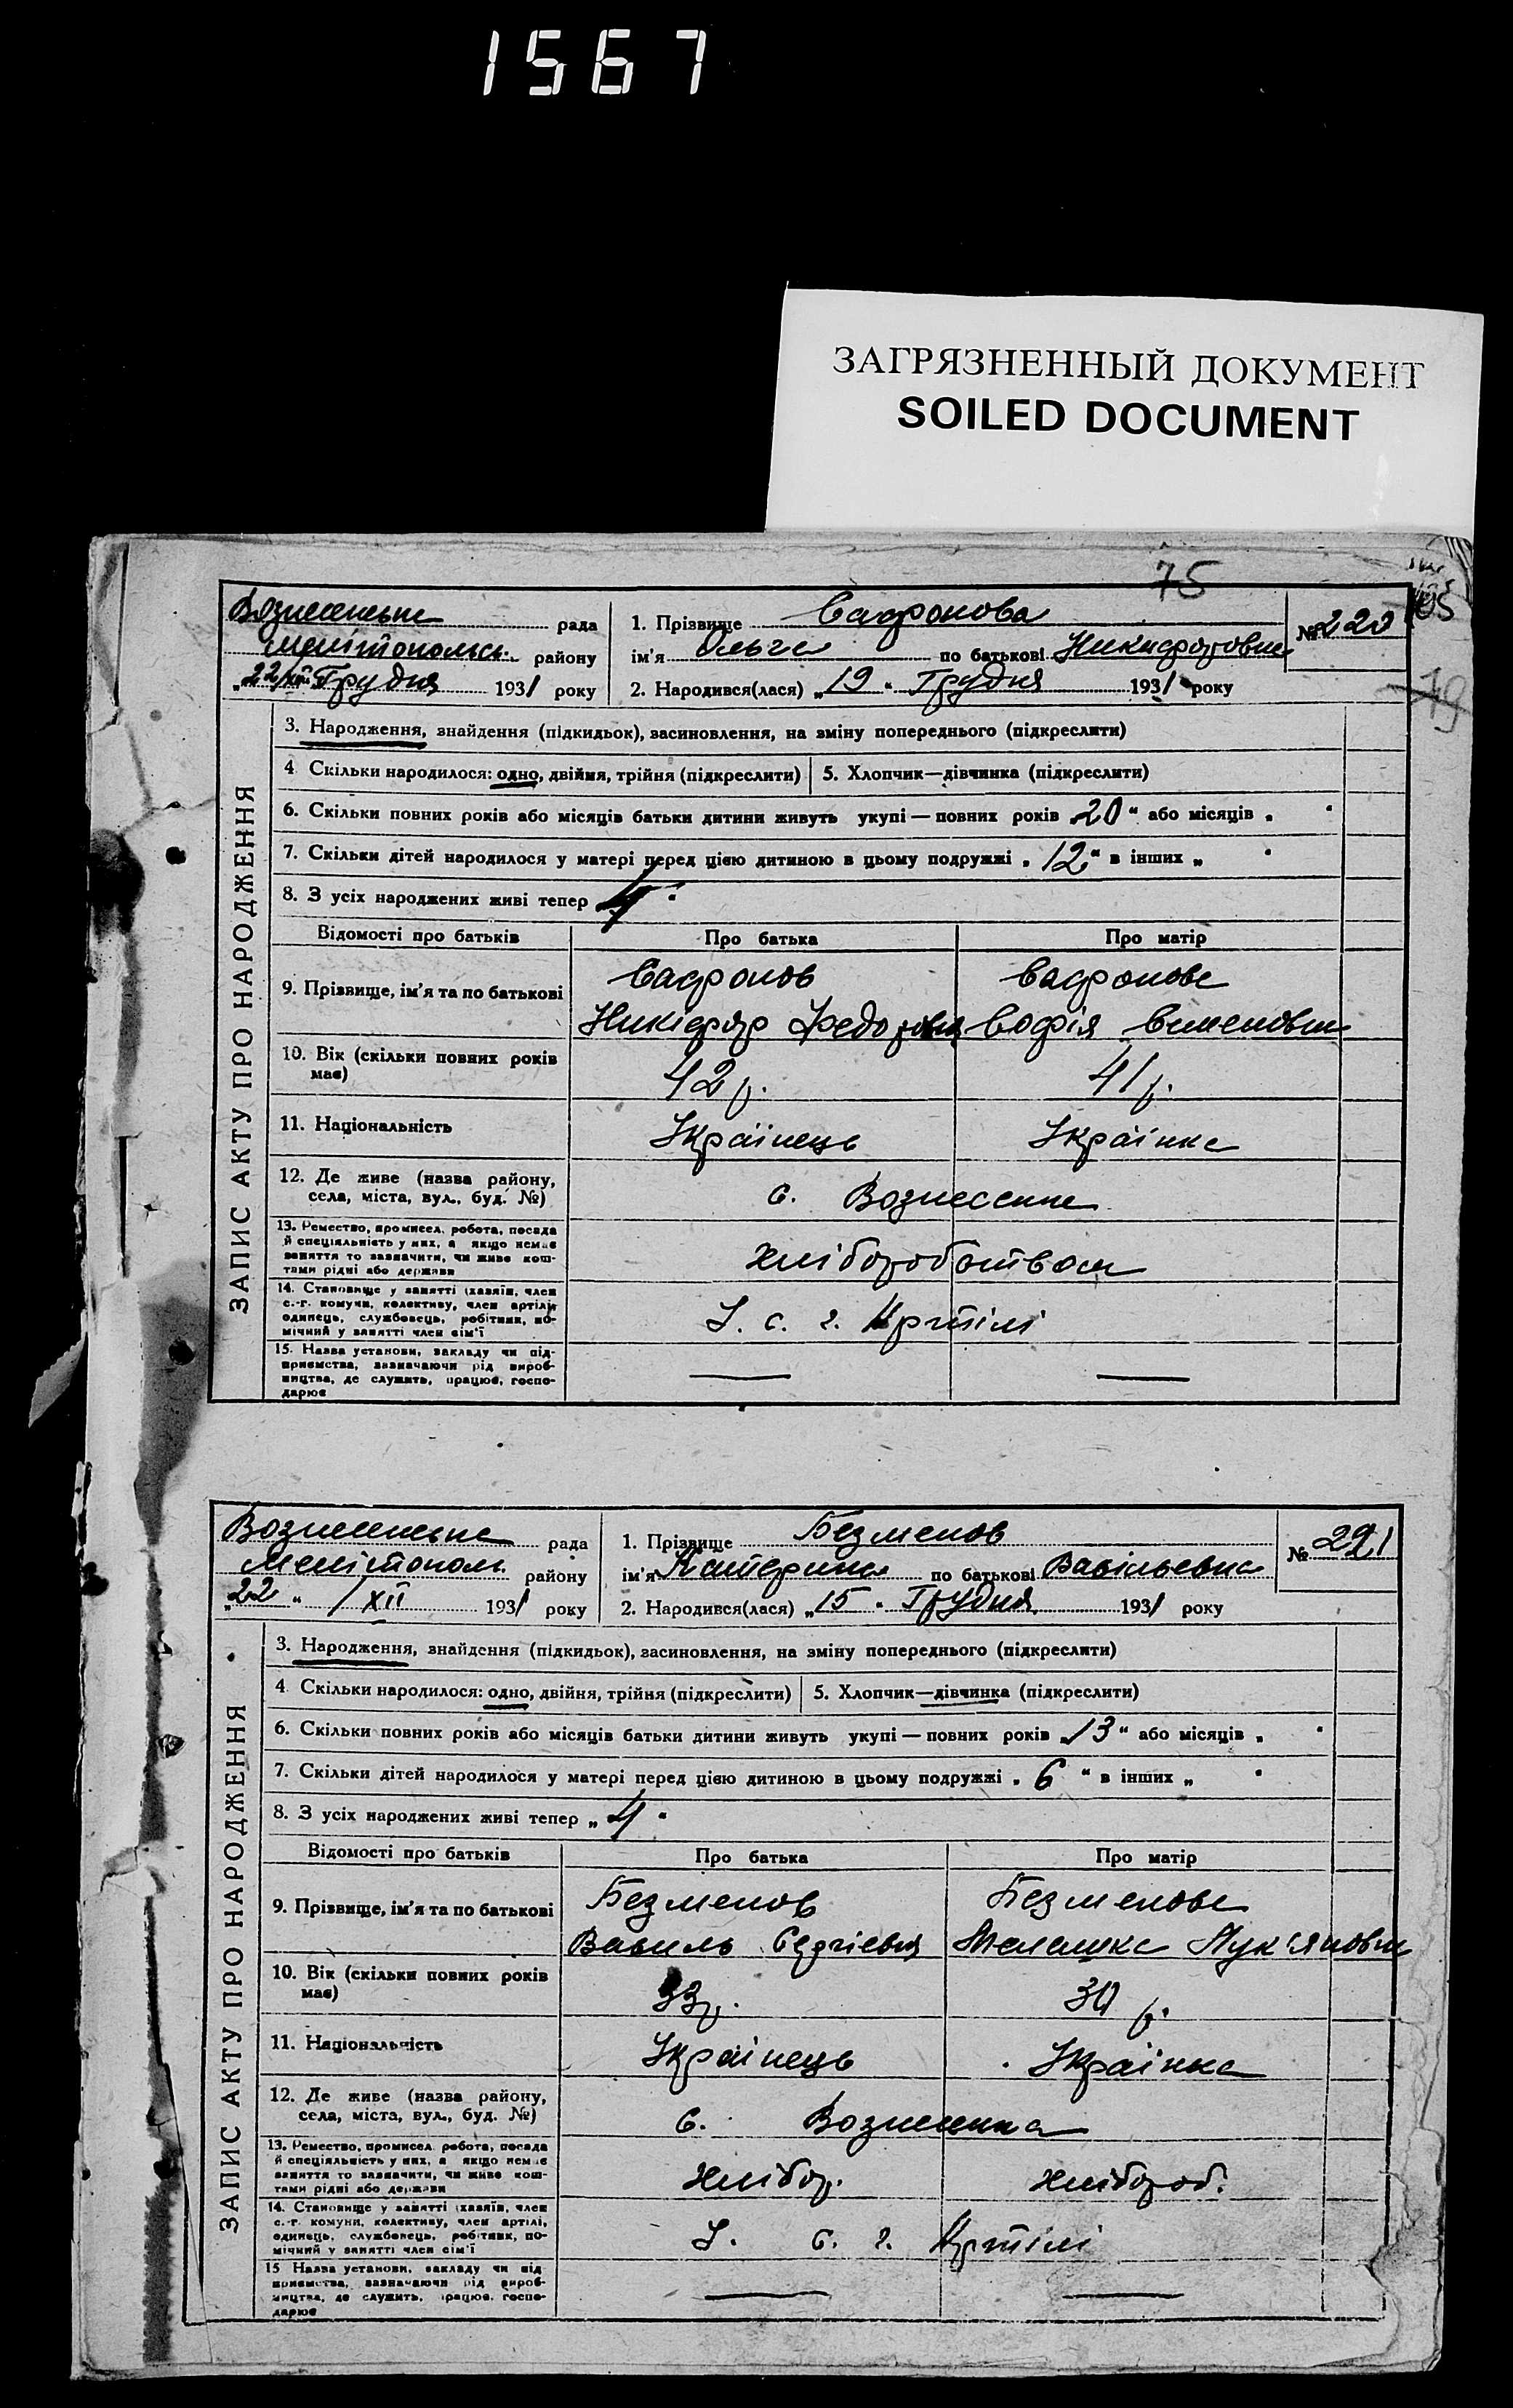 1567
ЗАГРЯЗНЕННЫЙ ДОКУМЕНТ
SOILED DOCUMENT
75
ЗАПИС АКТУ ПРО НАРОДЖЕННЯ
рада
Мелітопольськ. району
"22/XII" Грудня 1931 року
1. Прізвище Сафронова
ім'я Ольга по батькові Никифоровна
№ 220
2. Народився(лася) „19" Грудня 1931 року
3. Народження, знайдення (підкидьок), засиновлення, на зміну попереднього (підкреслити)
4 Скільки народилося: одно, двійня, трійня (підкреслити) 5. Хлопчик—дівчинка (підкреслити)
6. Скільки повних років або місяців батьки дитини живуть укупі — повних років „20" або місяців „ "
7. Скільки дітей народилося у матері перед цією дитиною в цьому подружжі „12" в інших „ "
8. З усіх народжених живі тепер 4 "
Відомості про батьків Про батька Про матір
9. Прізвище, ім'я та по батькові Сафронов Сафронова
Никіфор Федорович Софія Семеновна
10. Вік (скільки повних років має) 42 р. 41 р.
11. Національність Українець Українка
12. Де живе (назва району, села, міста, вул., буд. №) с. Вознесенка
13. Ремество, промисел, робота, посада й спеціяльність у них, а якщо немає заняття то зазначити, чи живе коштами рідні або держави хліборобством
14. Становище у занятті (хазяїн, член с.-г. комуни, колективу, член артілі, одинець, службовець, робітник, помічний у занятті член сім'ї У. с. г. Артілі
15. Назва установи, закладу чи підприємства, зазначаючи рід виробництва, де служить, працює, господарює — —
ЗАПИС АКТУ ПРО НАРОДЖЕННЯ
рада
Мелітополь. району
„22" /XII 1931 року
1. Прізвище Безменов
ім'я Катерина по батькові Васільевна
№ 221
2. Народився(лася) „15" Грудня 1931 року
3. Народження, знайдення (підкидьок), засиновлення, на зміну попереднього (підкреслити)
4 Скільки народилося: одно, двійня, трійня (підкреслити) 5. Хлопчик—дівчинка (підкреслити)
6. Скільки повних років або місяців батьки дитини живуть укупі — повних років „13" або місяців „ "
7. Скільки дітей народилося у матері перед цією дитиною в цьому подружжі „6" в інших „ "
8. З усіх народжених живі тепер „4"
Відомості про батьків Про батька Про матір
9. Прізвище, ім'я та по батькові Безменов Безменова
Василь Сергієвич Мелашка Лук'яновна
10. Вік (скільки повних років має) 33 р. 30 р.
11. Національність Українець Українка
12. Де живе (назва району, села, міста, вул., буд. №) с. Вознесенка
13. Ремество, промисел, робота, посада й спеціяльність у них, а якщо немає заняття то зазначити, чи живе коштами рідні або держави хлібор. хлібороб.
14. Становище у занятті (хазяїн, член с.-г. комуни, колективу, член артілі, одинець, службовець, робітник, помічний у занятті член сім'ї У. с. г. Артілі
15 Назва установи, закладу чи підприємства, зазначаючи рід виробництва, де служить, працює, господарює — —